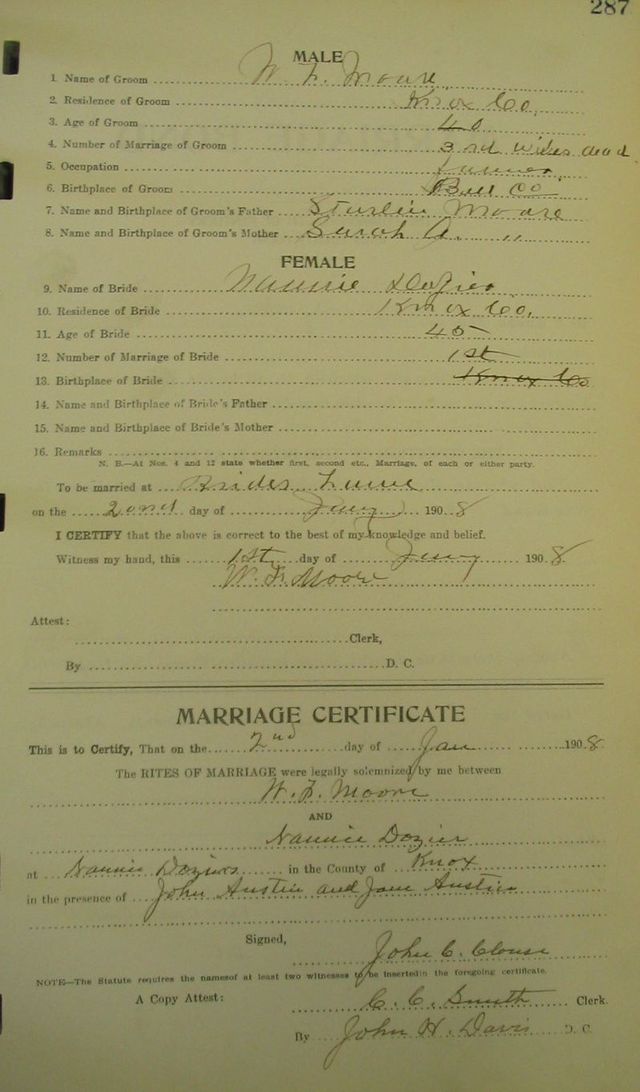 287
MALE
1. Name of Groom W. F. Moore
2. Residence of Groom Knox Co.
3. Age of Groom 40
4. Number of Marriage of Groom 3rd wifes dead
5. Occupation Farmer
6. Birthplace of Groom Bell Co
7. Name and Birthplace of Groom's Father Sturlin Moore
8. Name and Birthplace of Groom's Mother Sarah A. "
FEMALE
9. Name of Bride Nannie Dozier
10. Residence of Bride Knox Co.
11. Age of Bride 45
12. Number of Marriage of Bride 1st
13. Birthplace of Bride Knox Co
14. Name and Birthplace of Bride's Father
15. Name and Birthplace of Bride's Mother
16. Remarks
N. B.—At Nos. 4 and 12 state whether first, second etc., Marriage, of each or either party.
To be married at Brides
on the 2ond day of Jany 1908
I CERTIFY that the above is correct to the best of my knowledge and belief.
Witness my hand, this 1st day of Jany 1908
W. F. Moore
Attest:
Clerk,
By D. C.
MARRIAGE CERTIFICATE
This is to Certify, That on the 2nd day of Jan 1908
The RITES OF MARRIAGE were legally solemnized by me between
W. F. Moore
AND
Nannie Dozier
at Nannie Doziers in the County of Knox
in the presence of John Austin and Jane Austin
Signed,
John C. Clouse
NOTE—The Statute requires the namesof at least two witnesses to be insertedin the foregoing certificate.
A Copy Attest: C. C. Smith Clerk.
By John H. Davis D. C.